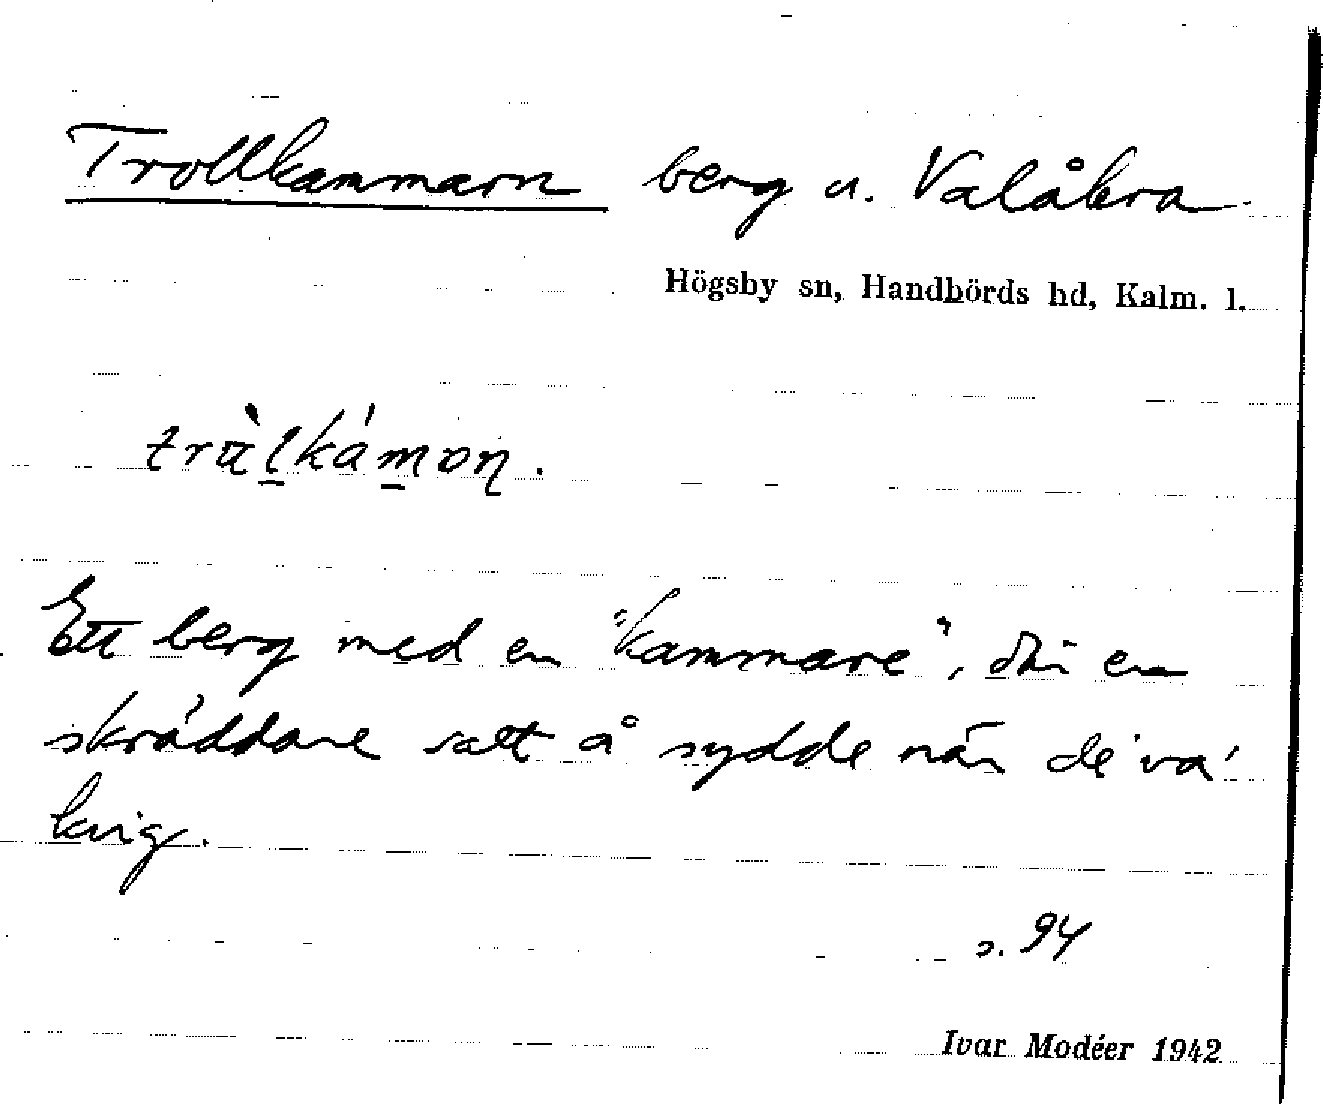 Trollkammarn berg u. Valåkra
Högsby sn, Handbörds hd, Kalm. l.
Ett berg med en "kammare", där en
skräddare satt å sydde när de' va'
krig.
s. 94
Ivar Modéer 1942